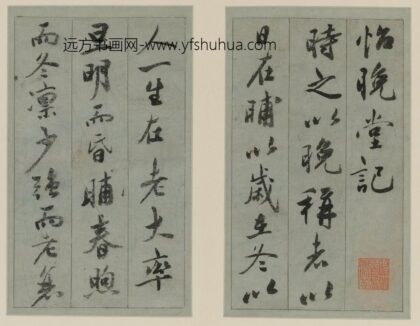 远方书画网-www.yfshuhua.com
怡晚堂記
時之以晚稱者以
日在晡以歲在冬以
人一生在老大率
旦明而昏晡春煦
而冬凜少强而老衰